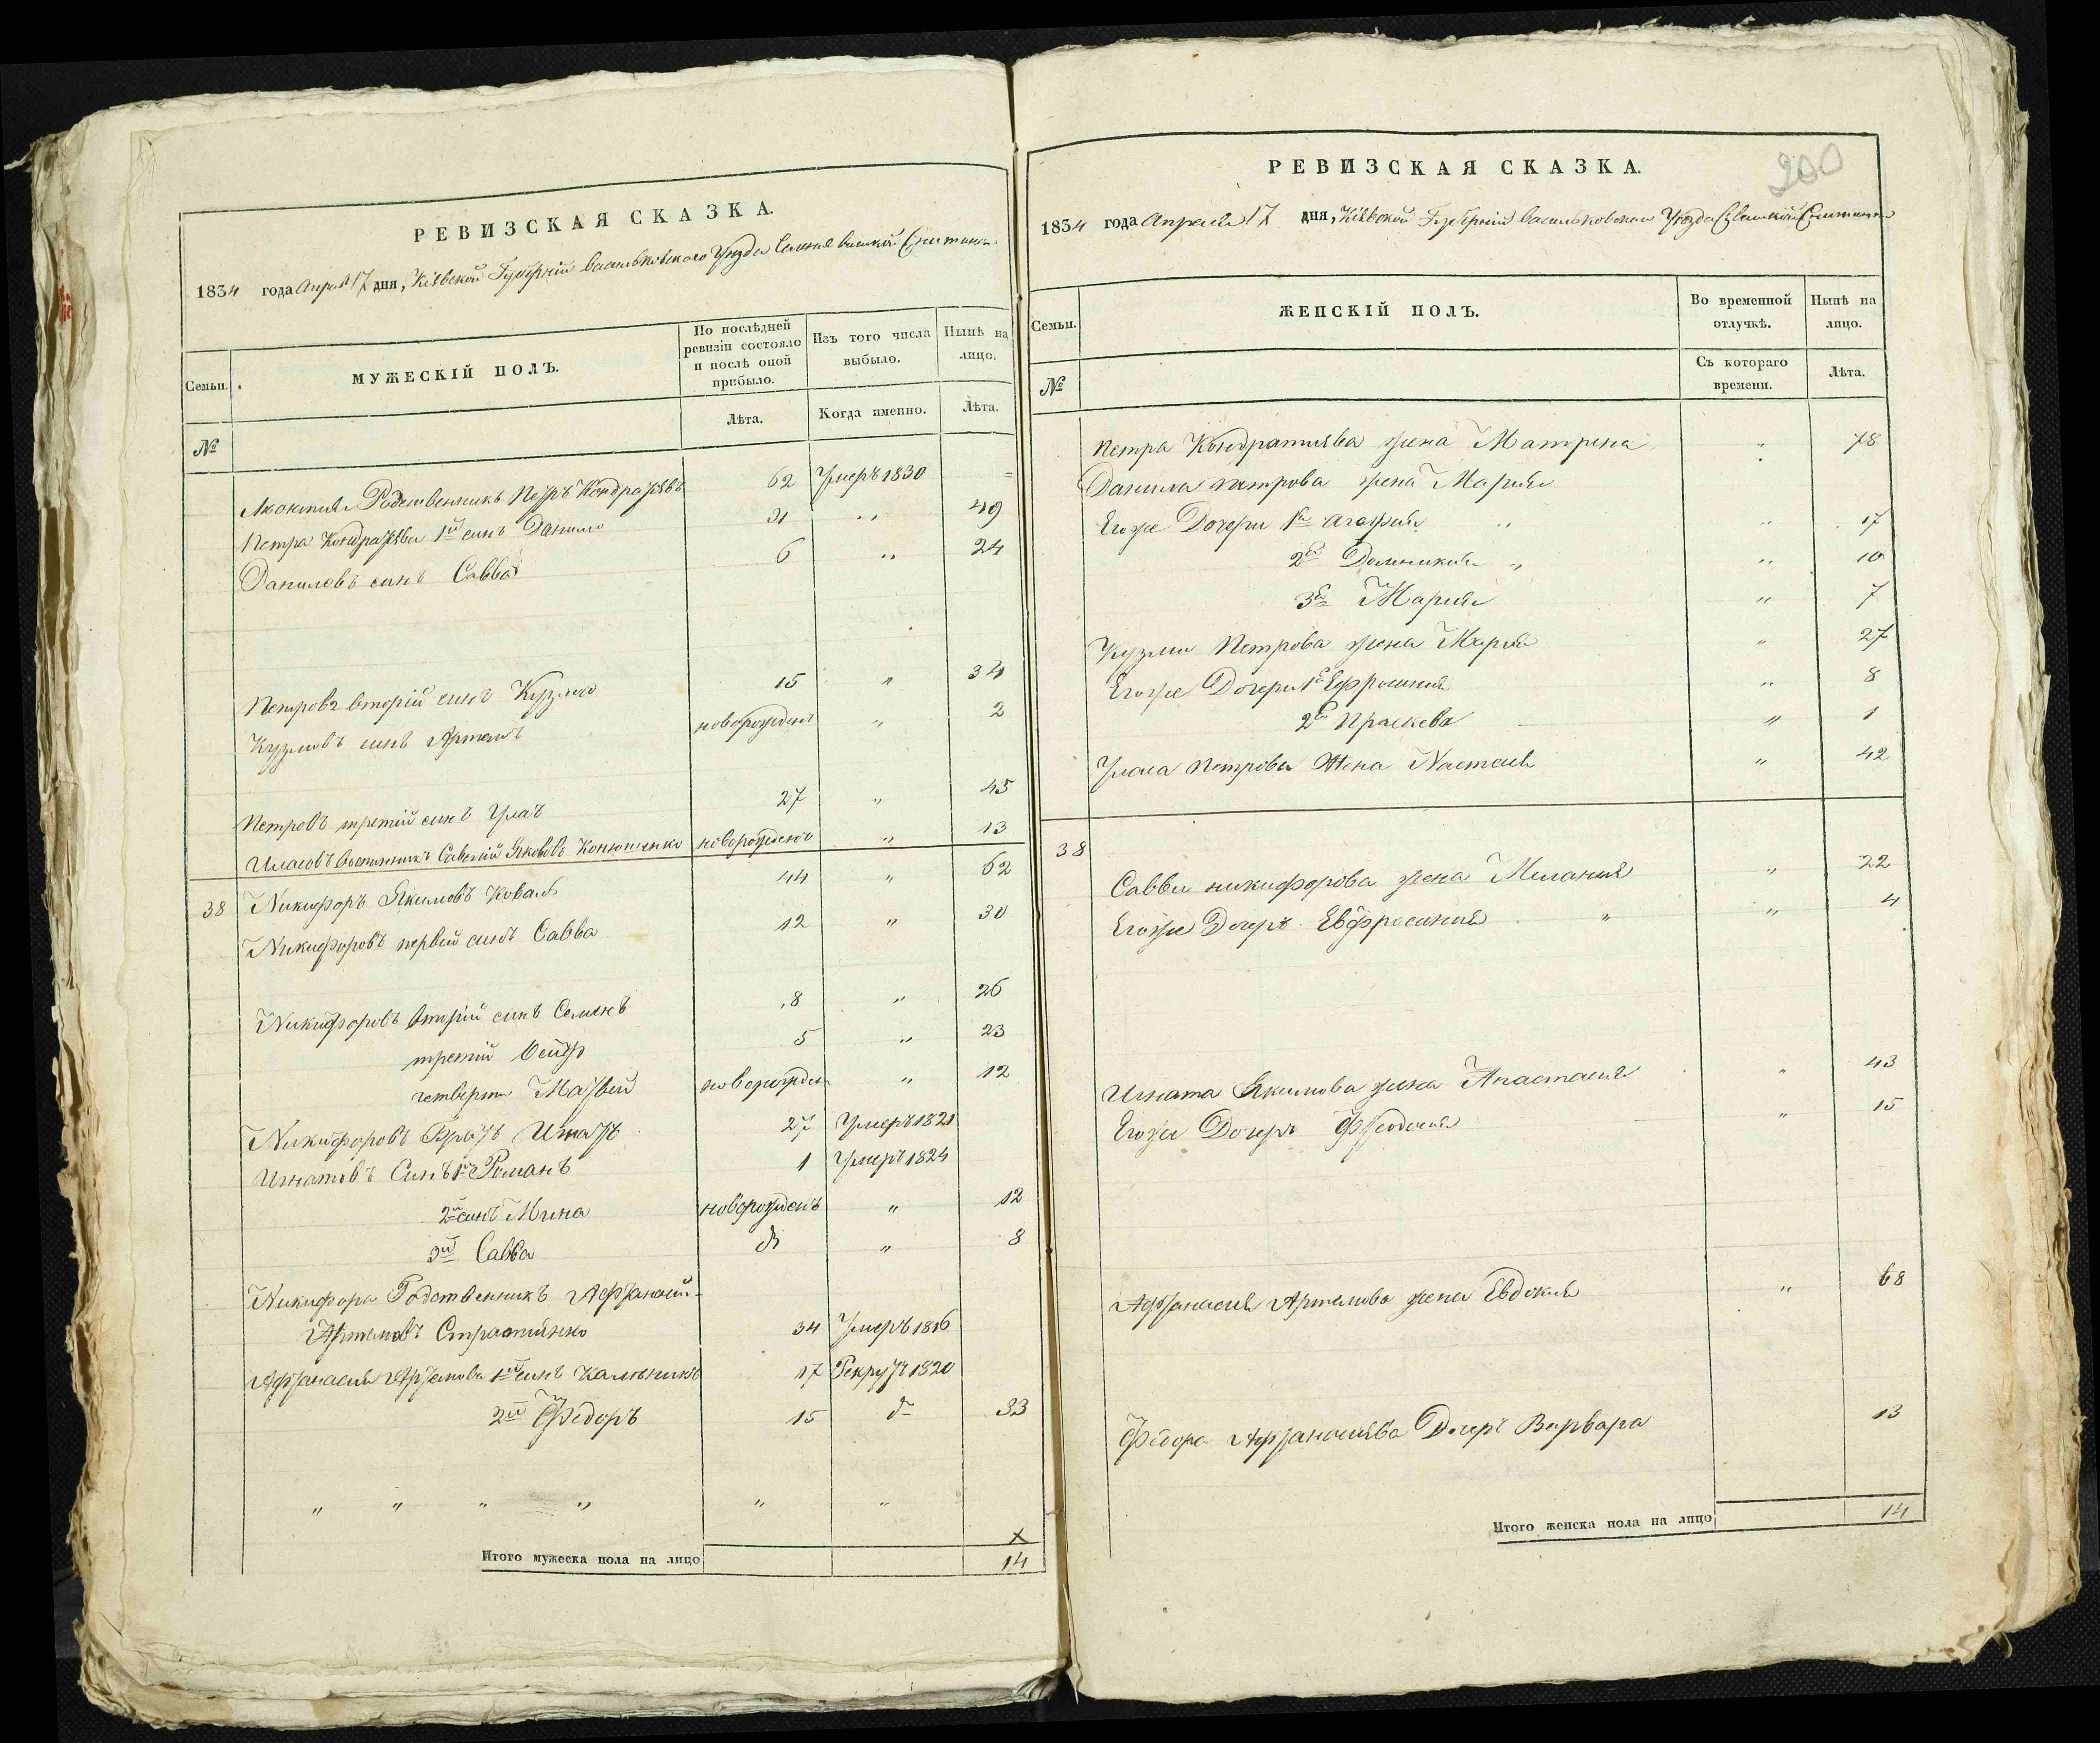 РЕВИЗСКАЯ СКАЗКА.
1834 года Апреля 17 дня, Кіевской Губерніи Васильковского Уезда Селенія Великой Снитинки
Семьи. МУЖЕСКІЙ ПОЛЪ. По послѣдней ревизіи состояло и послѣ оной прибыло. Изъ того числа выбыло. Нынѣ на лицо.
№ Лѣта. Когда именно. Лѣта.
Родственникъ Петръ Кондратьевъ 62 Умеръ 1830 =
Петра Кондратьева 1й синъ Данило 31 „ 49
Даниловъ синъ Савва 6 „ 24
Петровъ вторій синъ Кузма 15 „ 34
Кузмовъ синъ Артемъ новорожден „ 2
Петровъ третій синъ Улас 27 „ 45
Власовъ Воспитникъ Савелій Якововъ новорожденъ „ 13
38 Никифоръ Якимовъ Коваль 44 „ 62
Никифоровъ первій синъ Савва 12 „ 30
Никифоровъ вторій синъ Семенъ 8 „ 26
третій 5 „ 23
четверти Матвей новорожден „ 12
Никифоровъ Братъ Игнатъ 27 Умеръ 1821
Игнатовъ Синъ 1й Романъ 1 Умеръ 1824
2й синъ Мина новорожденъ „ 12
3й Савва „ 8
Никифора Родственникъ Афтанасій
Артемовъ 34 Умеръ 1816
Афтанасия Артемова 1й синъ Калѣникъ 17 Рекрутъ 1820
2й Федоръ 15 33
„ „ „ „ „ „
х
Итого мужеска пола на лицо 14
200
РЕВИЗСКАЯ СКАЗКА.
1834 года Апреля 17 дня, Кіевской Губерніи Васильковскаго Уезда С. Великой Снитинки
Семьи. ЖЕНСКІЙ ПОЛЪ. Во временной отлучкѣ. Нынѣ на лицо.
№ Съ котораго времени. Лѣта.
Петра Кондратиева жена Матрена „ 78
Данила петрова жена Марія
Егоже Дочери 1я Агафия „ 17
2я Домникия „ 10
3я Мария „ 7
Кузми Петрова жена Мария „ 27
Егоже Дочери 1я Ефросиния „ 8
2я Праскева „ 1
Уласа Петрова Жена Настасия „ 42
38
Савви никифорова жена Мелания „ 22
Егоже Дочеръ Евфросиния „ 4
Игната Якимова жена Анастасия „ 43
Егоже Дочеръ Феодосия „ 15
Афтанасия Артемова жена Евдокия „ 68
Федора Афтанасиева Дочеръ Варвара 13
Итого женска пола на лицо 14